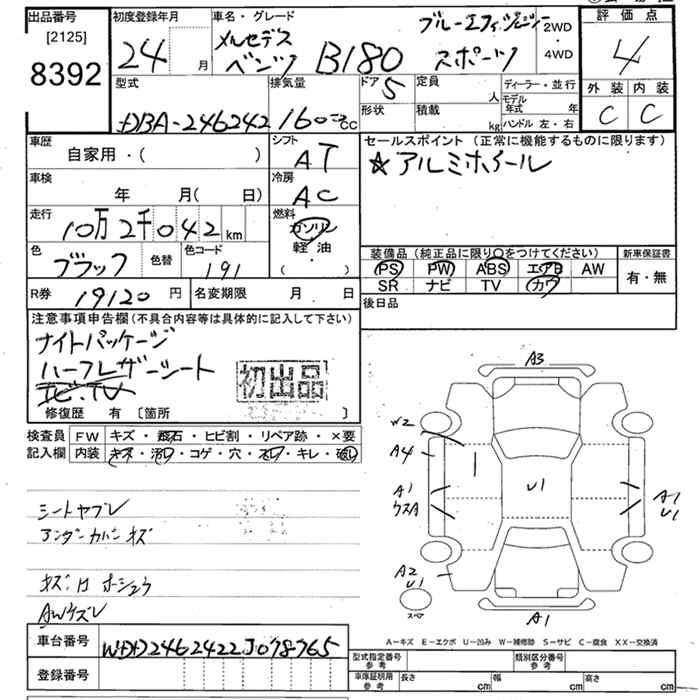 出品番号 初度登録年月 車名・グレード 評価点
[2125] 24 月 メルセデス ブルーエフィシェンシー 2WD
8392 ベンツ B180 スポーツ ・4WD 4
型式 排気量 ドア 5 定員 人 ディーラー・並行 外装 内装
DBA-246242 1600cc 形状 積載 kg モデル年式 年 C C
ハンドル 左・右
車歴 シフト セールスポイント(正常に機能するものに限ります)
自家用・( ) AT ☆アルミホイール
車検 冷房
年 月( 日) AC
走行 燃料
10万2千042km ガソリン
色 色替 色コード 軽油
ブラック 191 ( ・ )
装備品(純正品に限り○をつけてください) 新車保証書
PS PW ABS エアB AW 有・無
SR ナビ TV カワ
R券 19120円 名変期限 月 日 後日品
注意事項申告欄(不具合内容等は具体的に記入して下さい)
ナイトパッケージ
ハーフレザーシート
ナビ.TV
初出品
修復歴 有 〔箇所 〕
検査員 FW キズ・飛石・ヒビ割・リペア跡・×要
記入欄 内装 キズ・汚れ・コゲ・穴・スレ・キレ・破れ
シートヤブレ
アンダーカバーキズ
キズ凹ホシュウ
AWキズレ
A3
W2
A4
U1
A1
ウスA
A1
U1
A2
U1
スペア
A1
A−キズ E−エクボ U−凹み W−補修跡 S−サビ C−腐食 XX−交換済
車台番号 WDD2462422J078765
登録番号
型式指定番号 参考 類別区分番号 参考
車庫証明用 参考 長さ cm 幅 cm 高さ cm